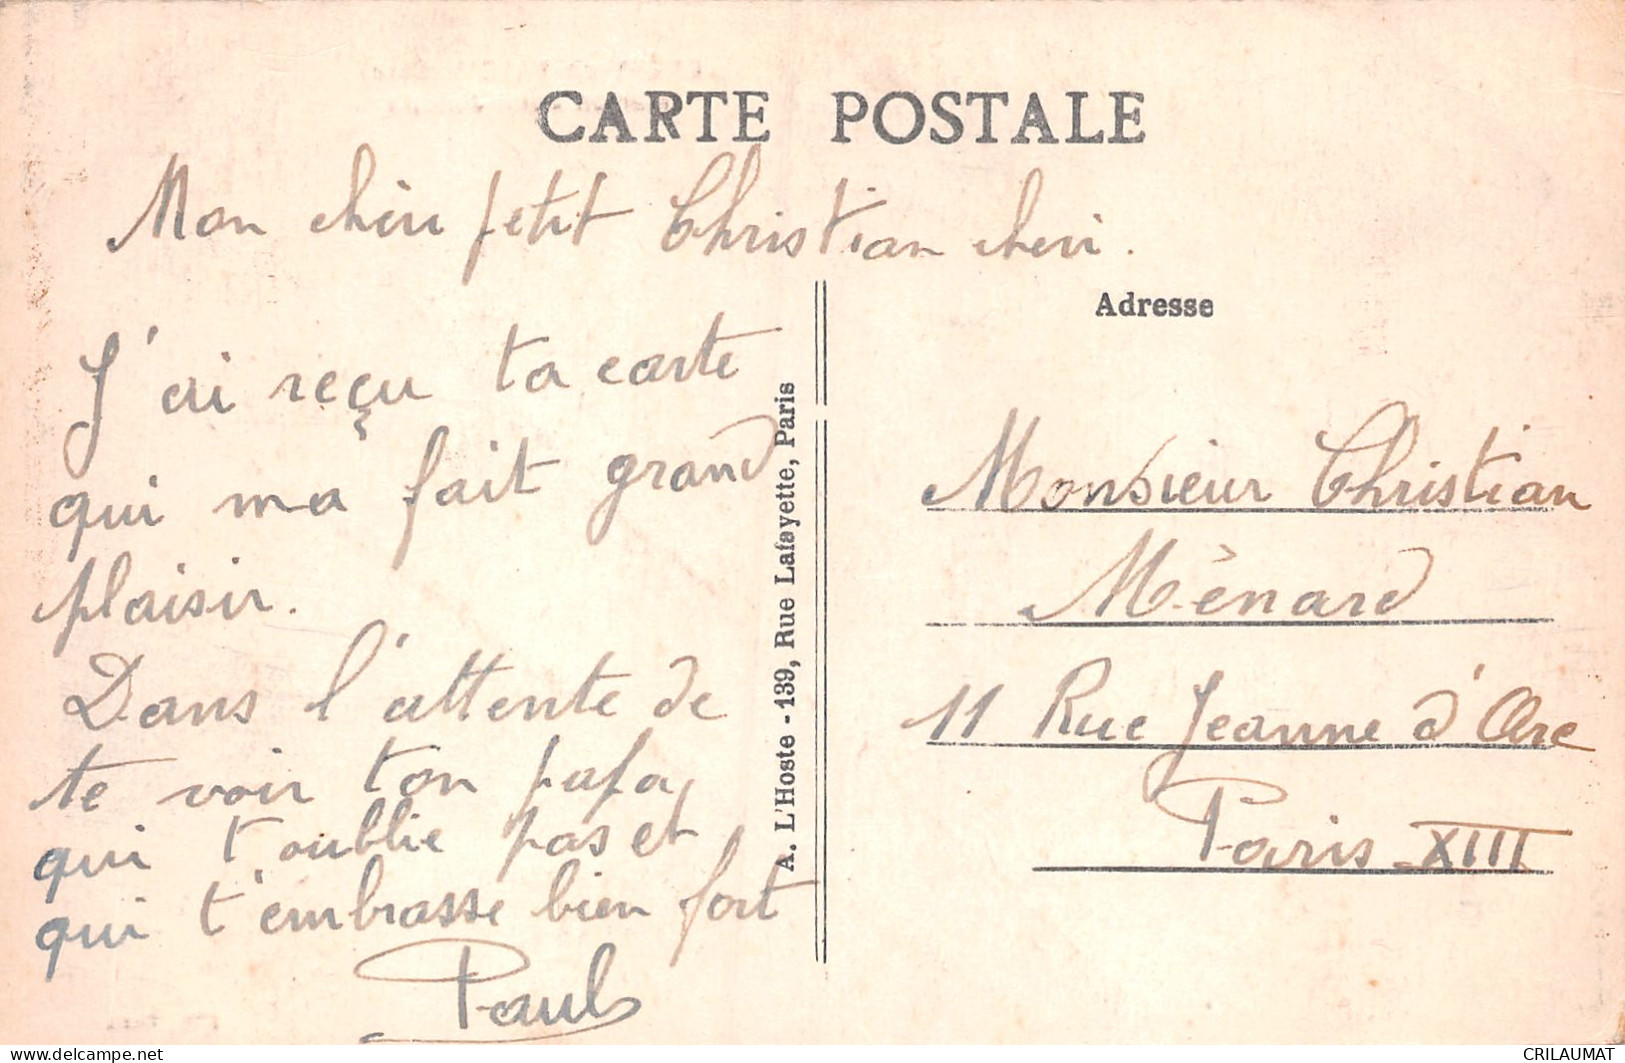 CARTE POSTALE
Mon chéri petit Christian cheri.
J'ai reçu ta carte
qui ma fait grand
plaisir.
Dans l'attente de
te voir ton papa
qui t'oublie pas et
qui t'embrasse bien fort
Paul
A. L'Hoste - 139, Rue Lafayette, Paris
Adresse
Monsieur Christian
Ménard
11 Rue Jeanne d'Arc
Paris XIII
delcampe.net
CRILAUMAT